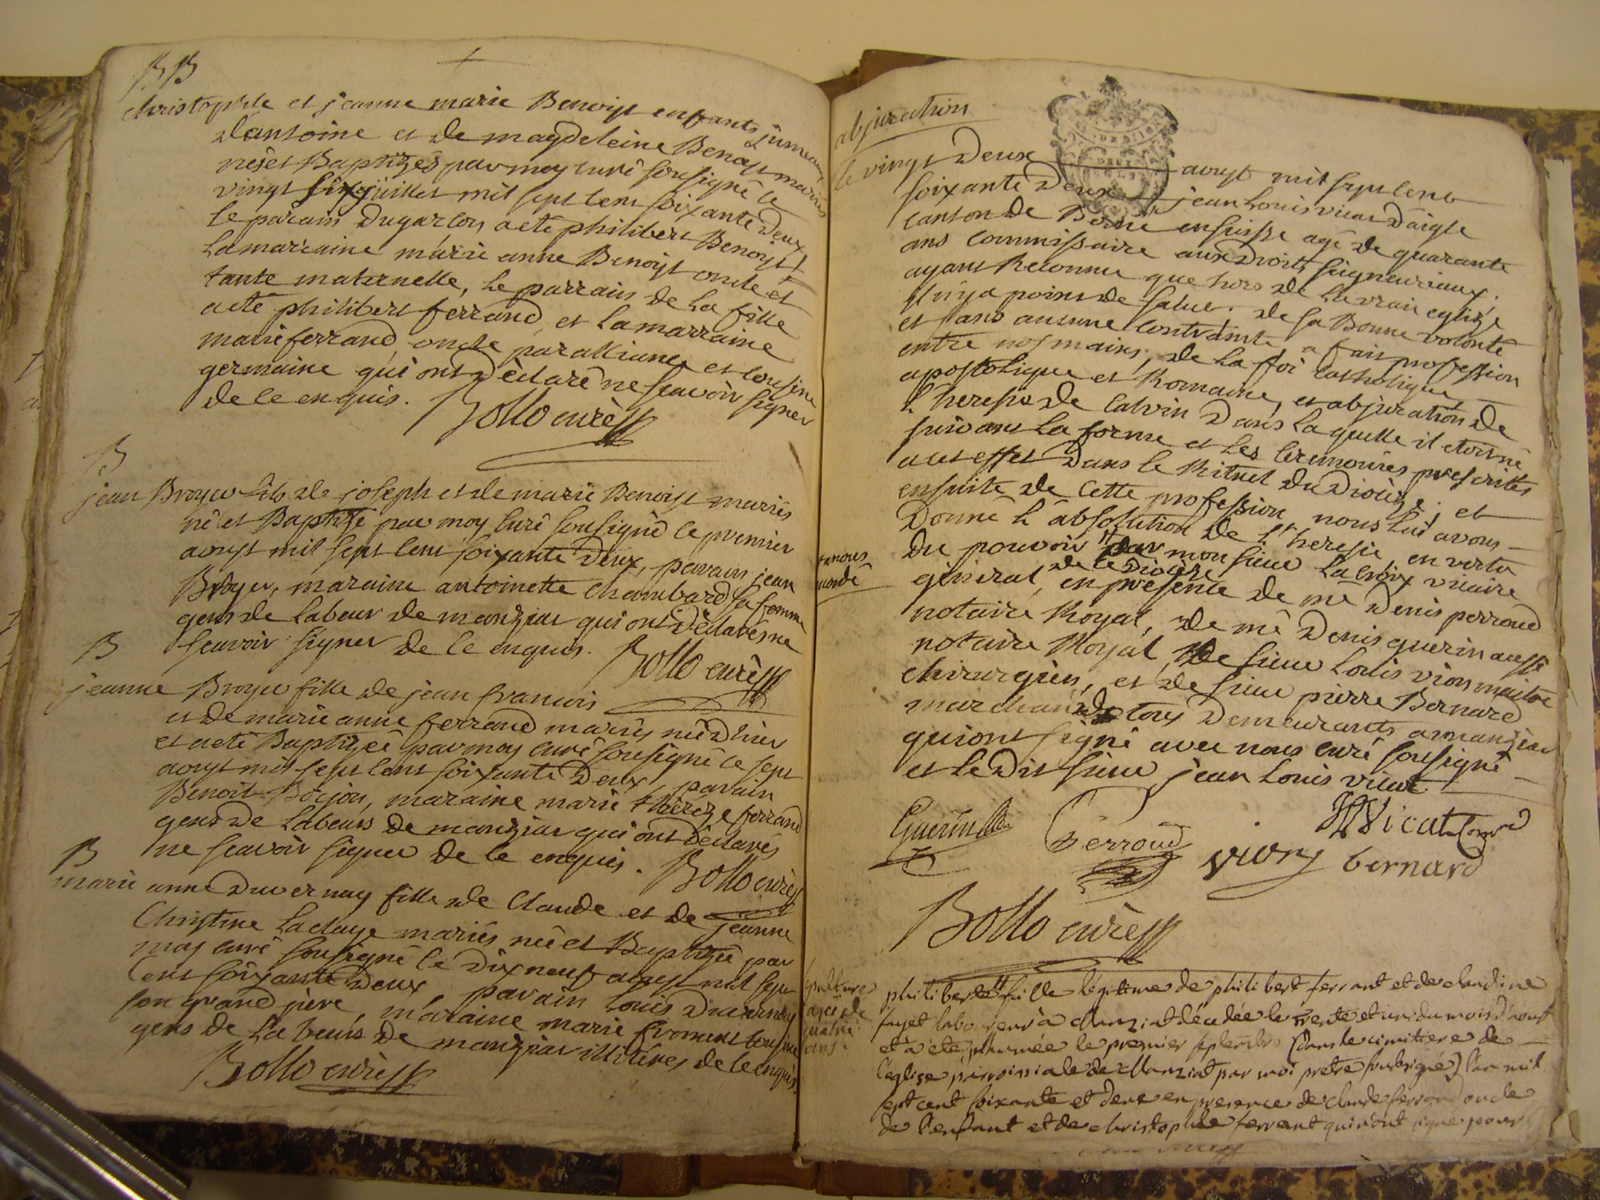 BB
christophle et jeanne marie Benoist enfants jumeaux
d'antoine et de magdeleine Benoist mariés
nés et Baptizés par moy curé sousigné le
vingt six juillet mil sept cens soixante deux
le parain du garcon a eté philibert Benoist
la marraine marie anne Benoist oncle et
tante maternelle, le parrain de la fille
a eté philibert ferrand et la marraine
marie ferrand oncle par alliance et cousine
germaine qui ont déclaré ne scavoir signer
de ce enquis. Bollo curé
B
jean Broyer fils de joseph et de marie Benoist mariés
né et Baptizé par moy curé sousigné le premier
aoust mil sept cens soixante deux, parain jean
Broyer, maraine antoinette Chambard sa femme
gens de labeur de manziat qui ont déclarés ne
scavoir signer de ce enquis. Bollo curé
B
jeanne Broyer fille de jean francois
et de marie anne ferrand mariés née d'hier
et a eté Baptizée par moy curé sousigné le sept
aoust mil sept cens soixante deux parain
Benoit Bojon, maraine marie thereze ferrand
gens de labeurs de manziat qui ont déclarés
ne scavoir signer de ce enquis. Bollo curé
B
marie anne Duvernay fille de Claude et de jeanne
Christine mariés née et Baptizée par
moy curé sousigné le dix neuf aoust mil sept
cens soixante deux parain louis Duvernay
son grand père, maraine marie froment
gens de labeurs de manziat illitirés de ce enquis
Bollo curé
abjuration
le vingt Deux aoust mil sept cens
soixante deux jean louis vicat d'aigle
canton de Berne en suisse agé de quarante
ans commissaire aux droits seigneuriaux.
ayant reconnu que hors de la vraie eglise
il n'y a point de salut. de sa bonne volonté
et sans aucune contrainte a fait profession
entre nos mains, de la foi catholique
apostolique et Romaine, et abjuration de
l'heresie de Calvin dans laquelle il etoit né
suivant la forme et les ceremonies prescrites
a cet effet dans le Rituel du Diocèze; et
ensuite de cette profession nous lui avons
donné l'absolution de l'heresie en vertu
du pouvoir par monsieur la croix vicaire
de ce diocèse
general, en presence de me Denis perroud
notaire Royal, de me Denis guerin aussi
notaire Royal de sieur louis vion maitre
chirurgien, et de sieur pierre Bernard
marchand tous demeurants a manziat
qui ont signé avec nous curé sousigné
et le dit sieur jean louis vicat
Guerin Perroud Vicat
vion bernard
Bollo curé
philiberte fille légitime de philibert ferrant et de claudine
fayet laboureur à Manziat décédée le trente et un du mois d'aoust
et à été inhumée le premier septembre dans le cimitiere de
l'eglise paroissiale de Manziat par moi pretre soussigné l'an mil
sept cent soixante et deux en presence de claude ferrand oncle
de l'enfant et de christophle ferrant qui n'ont signé pour